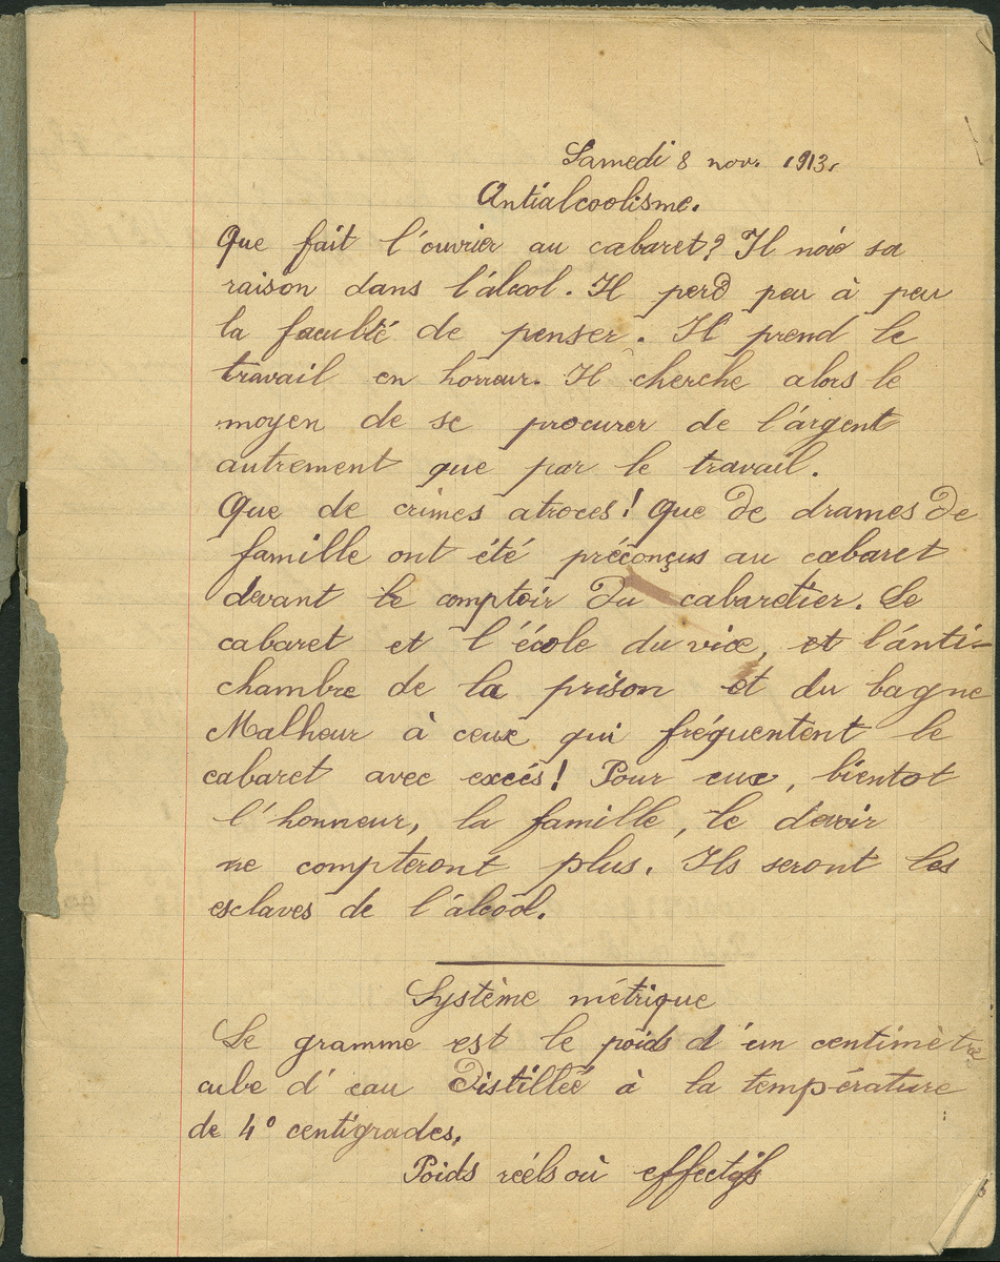 Samedi 8 nov. 1913.
Antialcoolisme.
Que fait l'ouvrier au cabaret? Il sa
raison dans l'alcool. Il perd peu à peu
la faculté de penser. Il prend le
travail en horreur. Il cherche alors le
moyen de se procurer de l'argent
autrement que par le travail.
Que de crimes atroces! Que de drames de
famille ont été préconçus au cabaret
devant le comptoir du cabaretier. Le
cabaret et l'école du vice, et l'anti-
chambre de la prison et du bagne
Malheur à ceux qui fréquentent le
cabaret avec excès! Pour eux, bientot
l'honneur, la famille, le devoir
ne compteront plus. Ils seront les
esclaves de l'alcool.
Système métrique
Le gramme est le poids d'un centimètre
cube d'eau distillée à la température
de 4° centigrades.
Poids réels ou effectifs